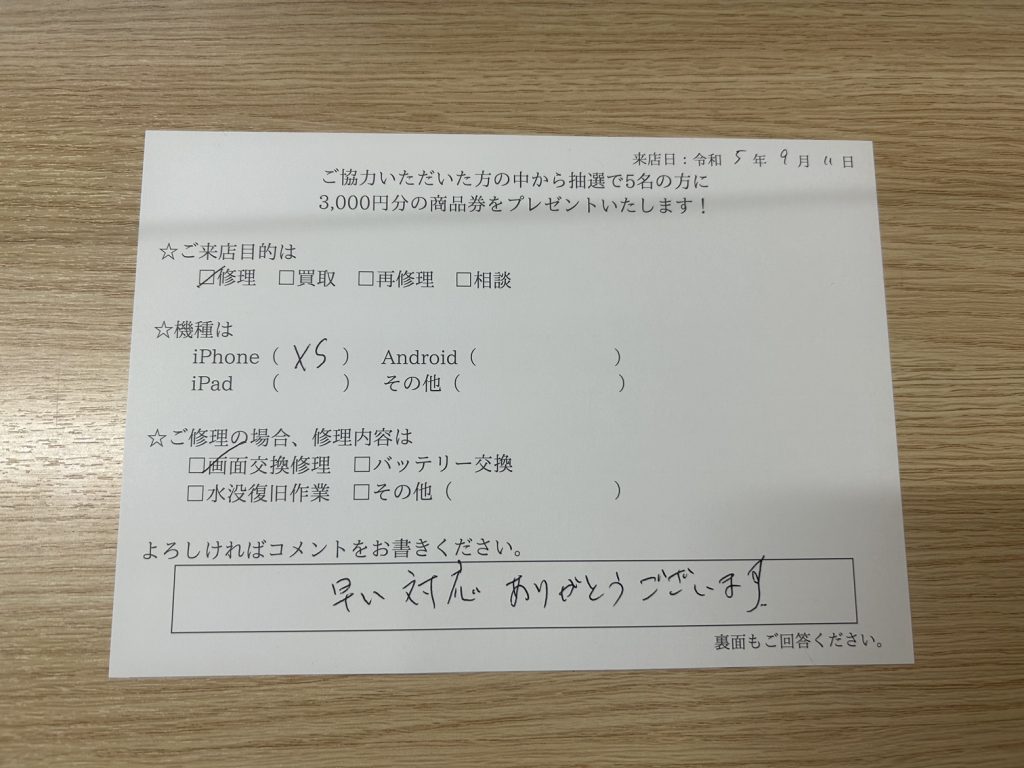 来店日：令和 5 年 9 月 11 日
ご協力いただいた方の中から抽選で5名の方に
3,000円分の商品券をプレゼントいたします！
☆ご来店目的は
☑修理 □買取 □再修理 □相談
☆機種は
iPhone（ XS ） Android（ ）
iPad （ ） その他（ ）
☆ご修理の場合、修理内容は
☑画面交換修理 □バッテリー交換
□水没復旧作業 □その他（ ）
よろしければコメントをお書きください。
早い対応ありがとうございます
裏面もご回答ください。